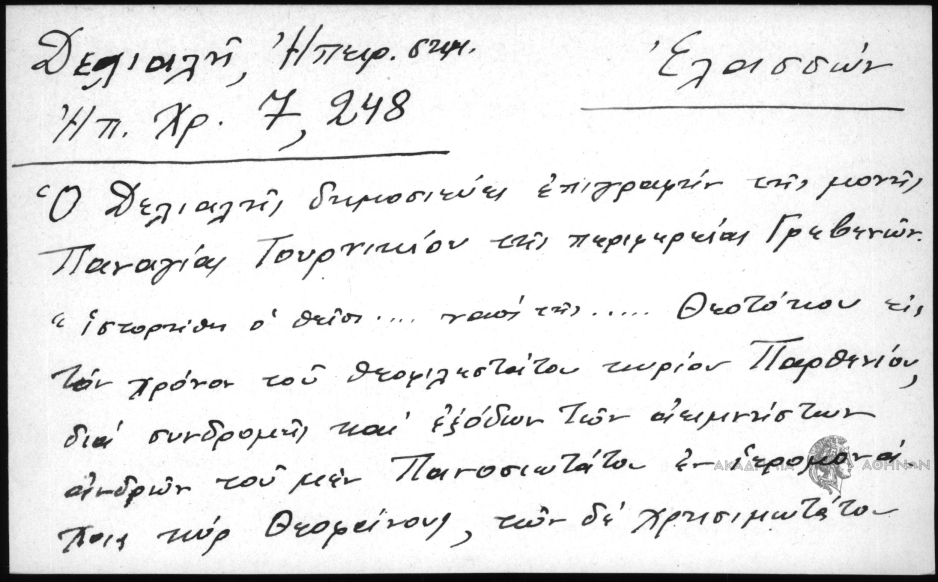 Δελιαλῆ, Ἠπειρ. σημ.
Ἐλασσών
Ἠπ. Χρ. 7, 248
Ὁ Δελιαλῆς δημοσιεύει ἐπιγραφήν τῆς μονῆς
Παναγίας Τουρνικίου τῆς περιφερείας Γρεβενῶν.
"ἱστορήθη ὁ θεῖος .... ναός τῆς ..... Θεοτόκου εἰς
τόν χρόνον τοῦ θεοφιλεστάτου κυρίου Παρθενίου,
διά συνδρομῆς καί ἐξόδων τῶν ἀειμνήστων
ἀνδρῶν τοῦ μέν Πανοσιωτάτου ἐν ἱερομονά-
χοις κύρ Θεοφάνους, τῶν δέ χρησιμωτάτου
ΑΚΑΔΗΜΙΑ ΑΘΗΝΩΝ